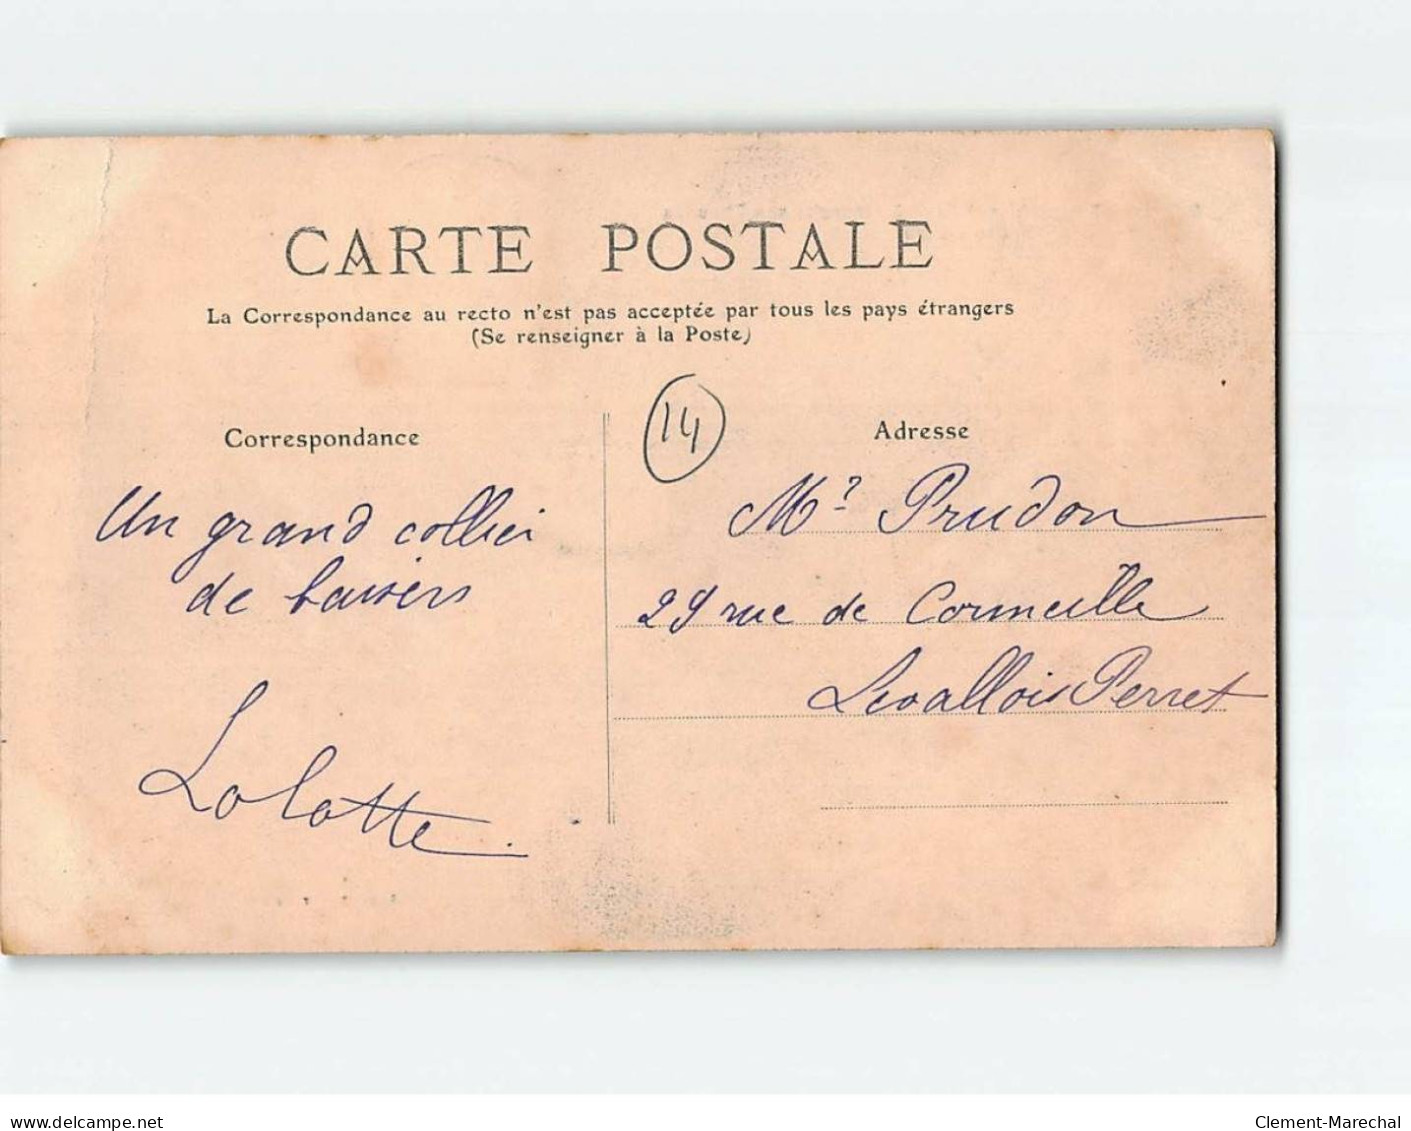 CARTE POSTALE
La Correspondance au recto n'est pas acceptée par tous les pays étrangers
(Se renseigner à la Poste)
Correspondance
Un grand collier
de baisers
Lolotte.
14
Adresse
Mr Prudon
29 rue de Cormeille
Levallois Perret
www.delcampe.net
Clement-Marechal